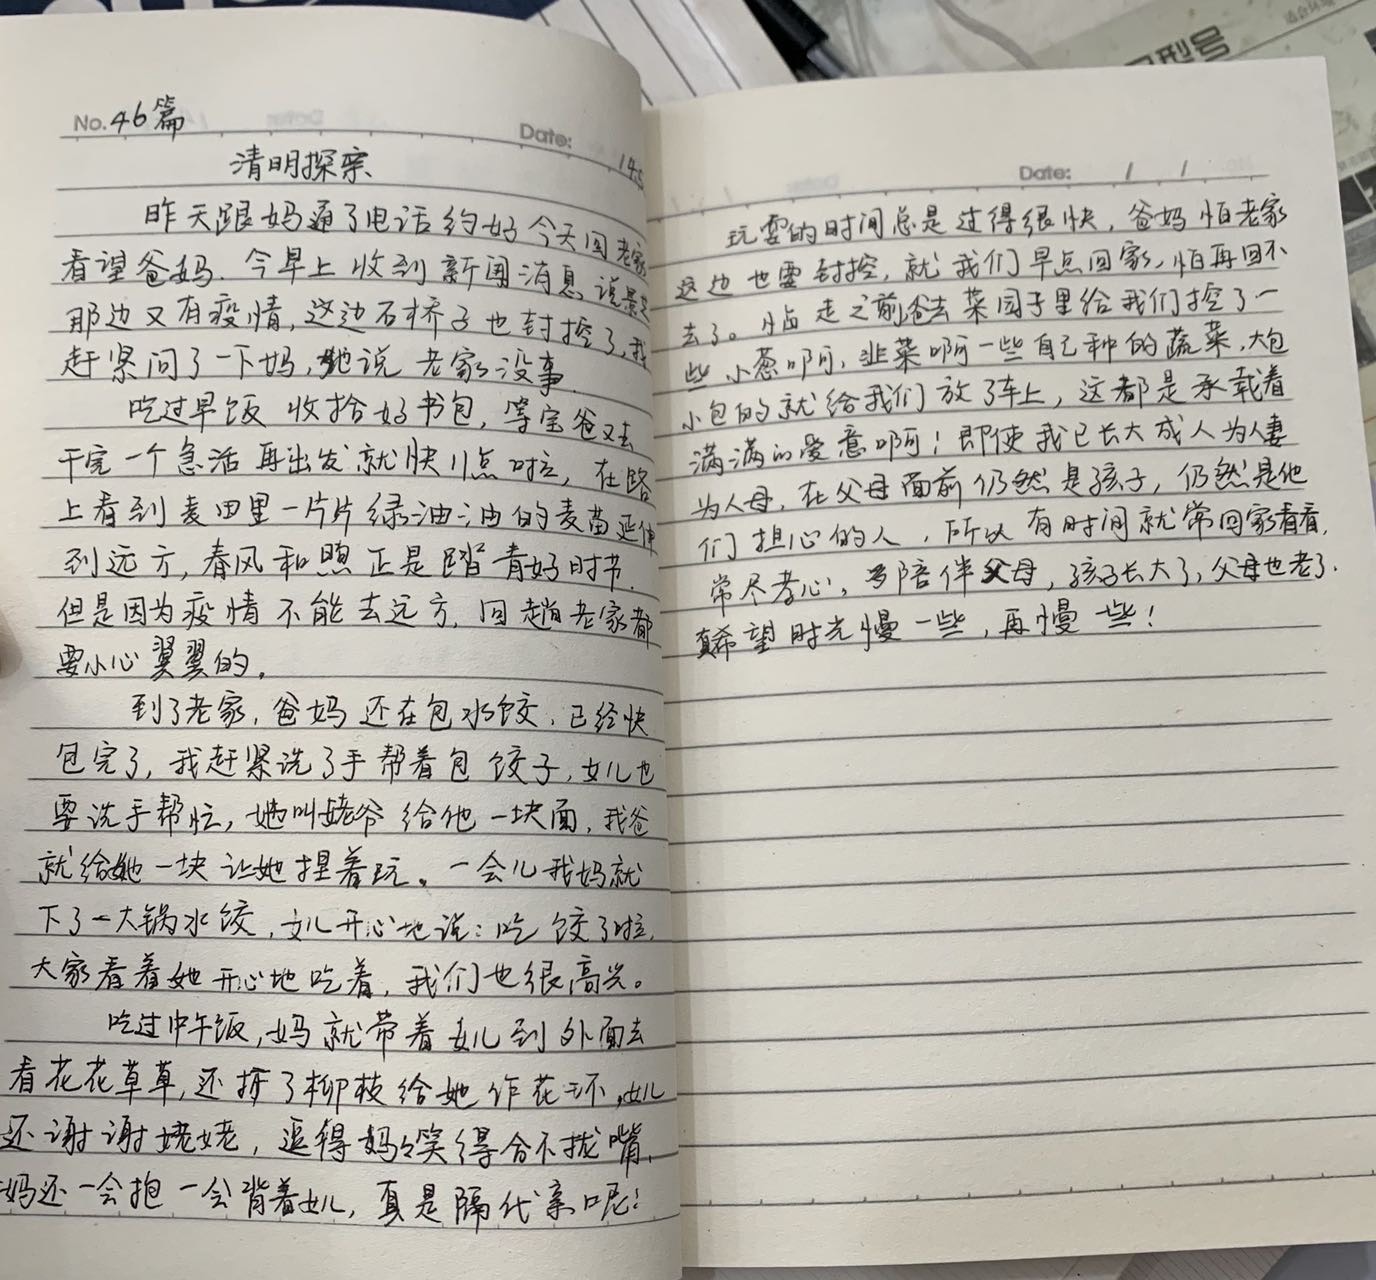 No. 46篇
Date:
清明探亲
昨天跟妈通了电话约好今天回老家
看望爸妈.今早上收到新闻消息说景
那边又有疫情,这边石桥子也封控了,我
赶紧问了一下妈,她说老家没事.
吃过早饭收拾好书包,等宝爸又去
干完一个急活再出发就快11点啦,在路
上看到麦田里一片片绿油油的麦苗延伸
到远方,春风和煦正是踏青好时节.
但是因为疫情不能去远方,回趟老家都
要小心翼翼的。
到了老家,爸妈还在包水饺,已经快
包完了,我赶紧洗了手帮着包饺子,女儿也
要洗手帮忙,她叫姥爷给他一块面,我爸
就给她一块让她捏着玩。一会儿我妈就
下了一大锅水饺,女儿开心地说:吃饺了啦,
大家看着她开心地吃着,我们也很高兴。
吃过中午饭,妈就带着女儿到外面去
看花花草草,还折了柳枝给她作花环,女儿
还谢谢姥姥,逗得妈妈笑得合不拢嘴,
妈还一会抱一会背着女儿,真是隔代亲呢!
Date: / /
玩耍的时间总是过得很快,爸妈怕老家
这边也要封控,就我们早点回家,怕再回不
去了。临走之前爸去菜园子里给我们挖了一
些小葱啊,韭菜啊一些自己种的蔬菜,大包
小包的就给我们放了车上,这都是承载着
满满的爱意啊!即使我已长大成人为人妻
为人母,在父母面前仍然是孩子,仍然是他
们担心的人,所以有时间就常回家看看,
常尽孝心,多陪伴父母,孩子长大了,父母也老了.
真希望时光慢一些,再慢一些!
型号
适合环境